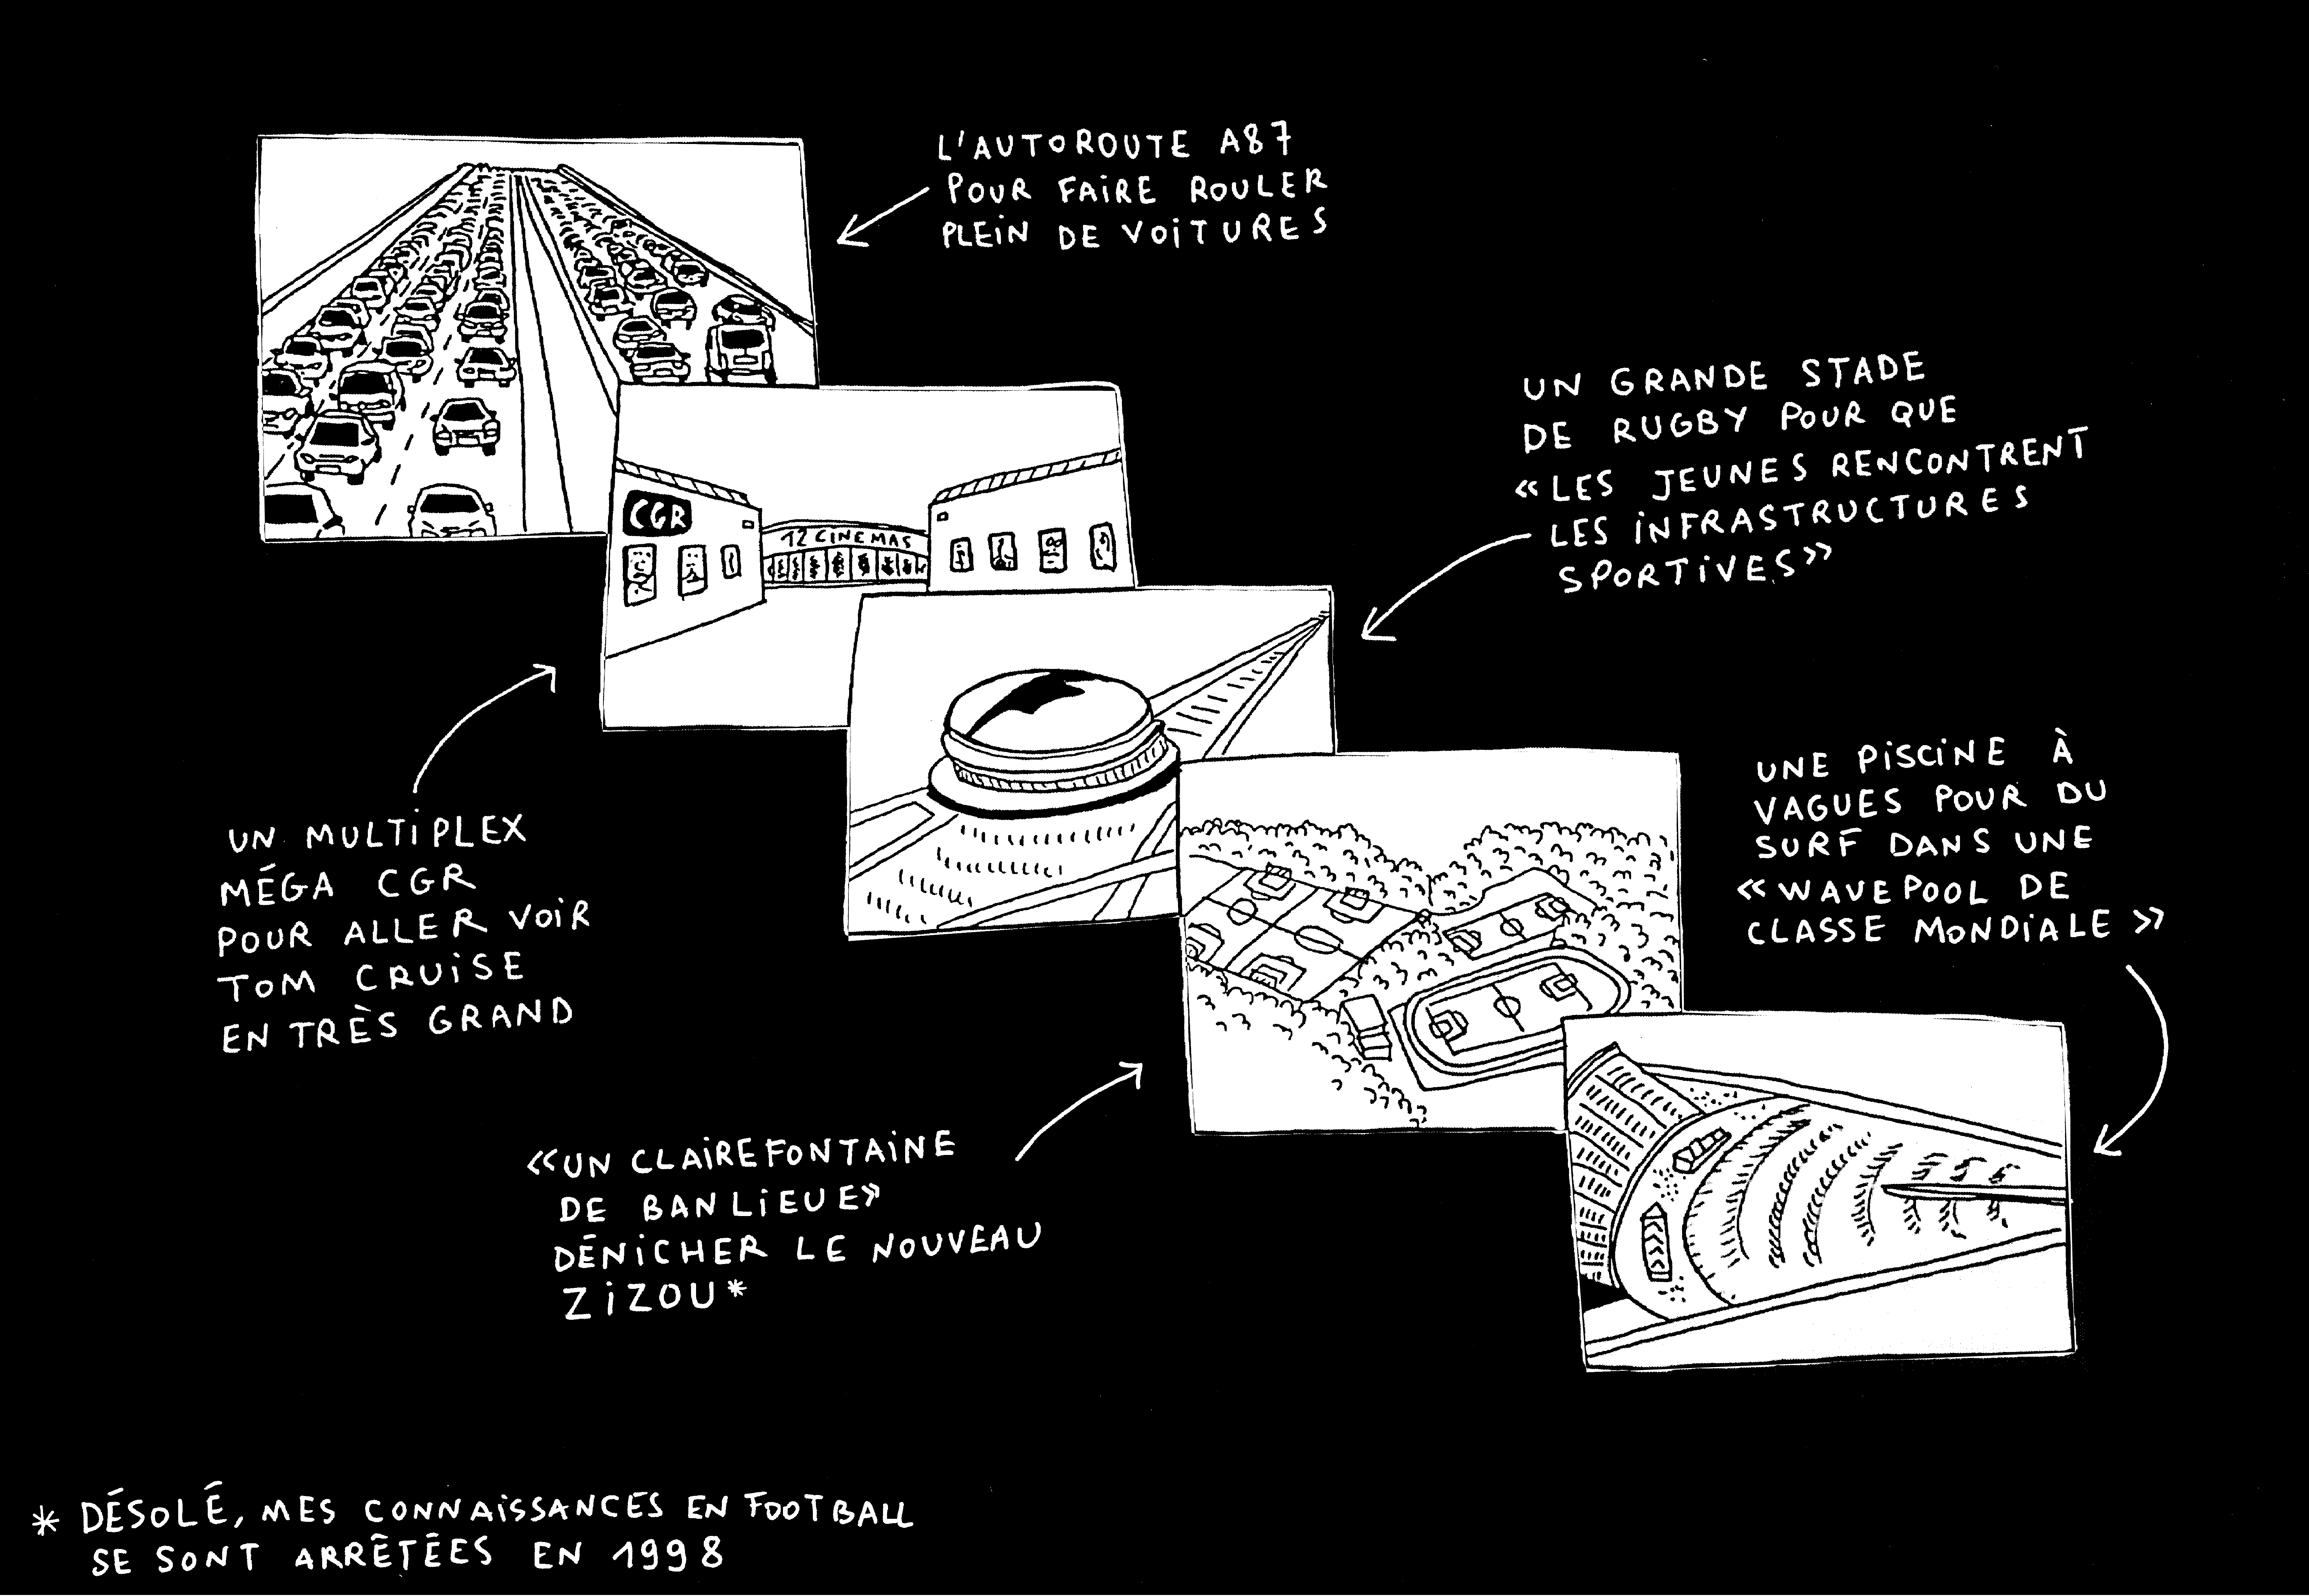 L'AUTOROUTE A87
POUR FAiRE ROULER
PLEiN DE VOiTURES
CGR
12 CINEMAS
UN GRANDE STADE
DE RUGBY POUR QUE
«LES JEUNES RENCONTRENT
LES iNFRASTRUCTURES
SPORTiVES»
UN MULTiPLEX
MÉGA CGR
POUR ALLER VOiR
TOM CRUiSE
EN TRÈS GRAND
UNE PiSCiNE À
VAGUES POUR DU
SURF DANS UNE
«WAVEPOOL DE
CLASSE MONDiALE»
«UN CLAiREFONTAiNE
DE BANLiEUE»
DÉNiCHER LE NOUVEAU
ZiZOU*
* DÉSOLÉ, MES CONNAiSSANCES EN FOOTBALL
SE SONT ARRÊTÉES EN 1998